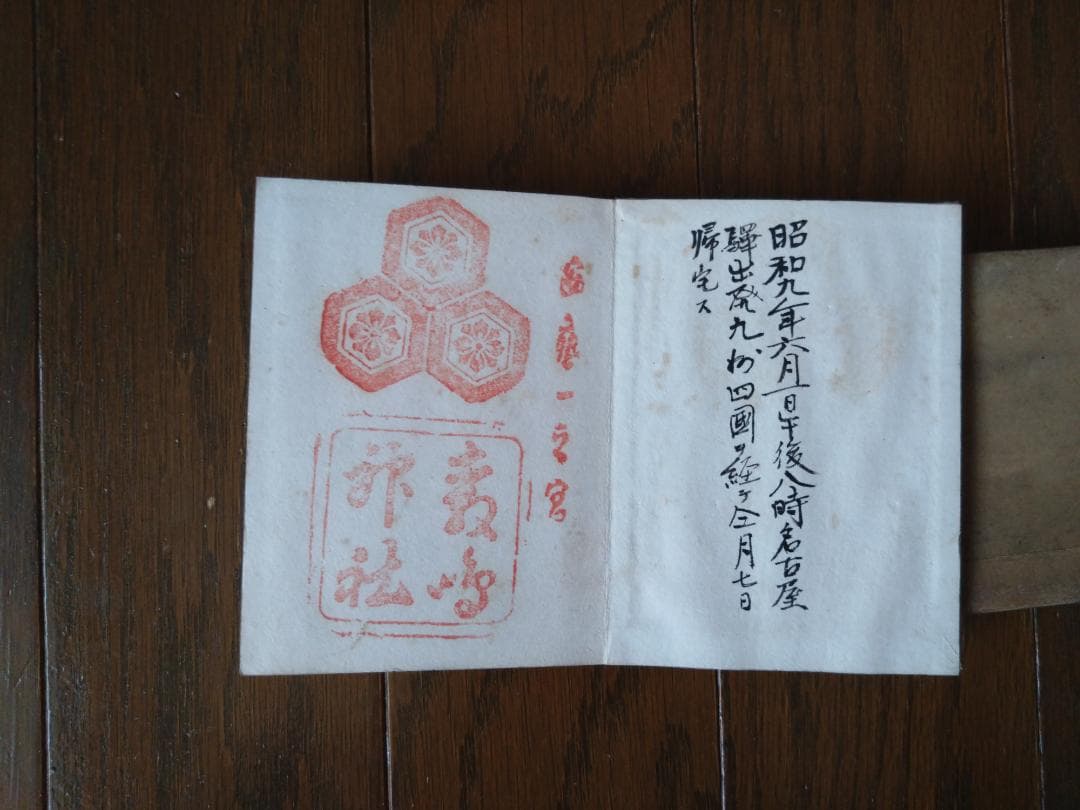 昭和九年六月一日午後八時名古屋
驛出発九州四國ヲ経テ仝月七日
帰宅ス
安藝一之宮
嚴嶋
神社